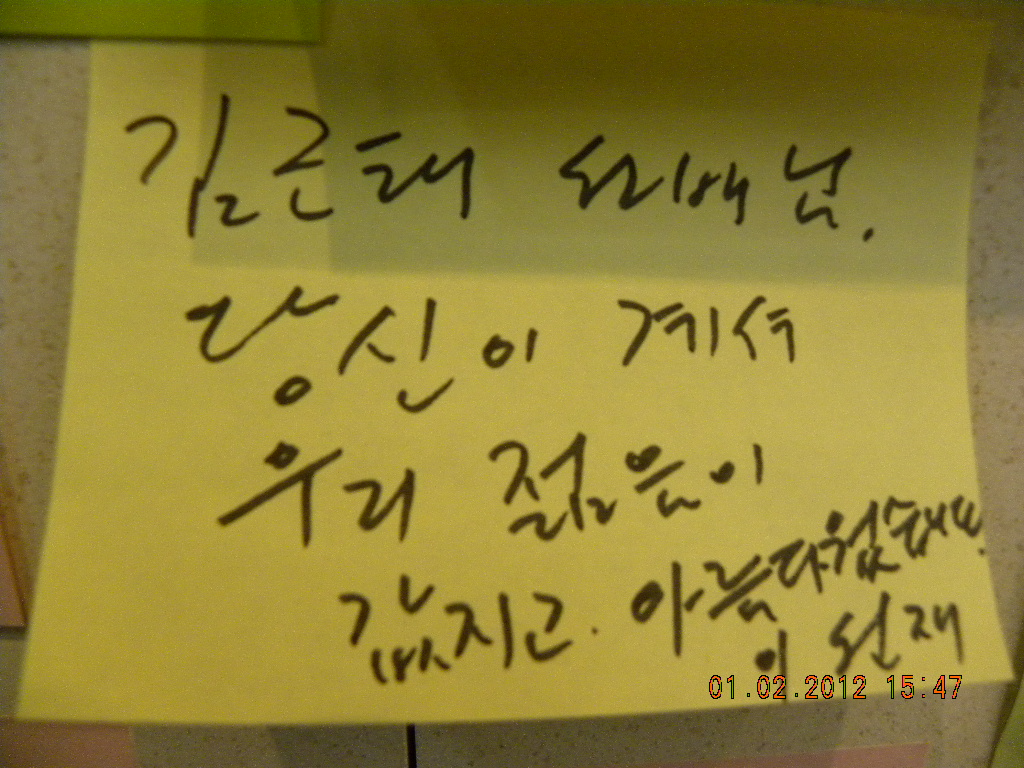 김근태 선배님.
당신이 계셔
우리 젊음이
값지고. 아름다웠습니다.
이 선재
01.02.2012 15:47